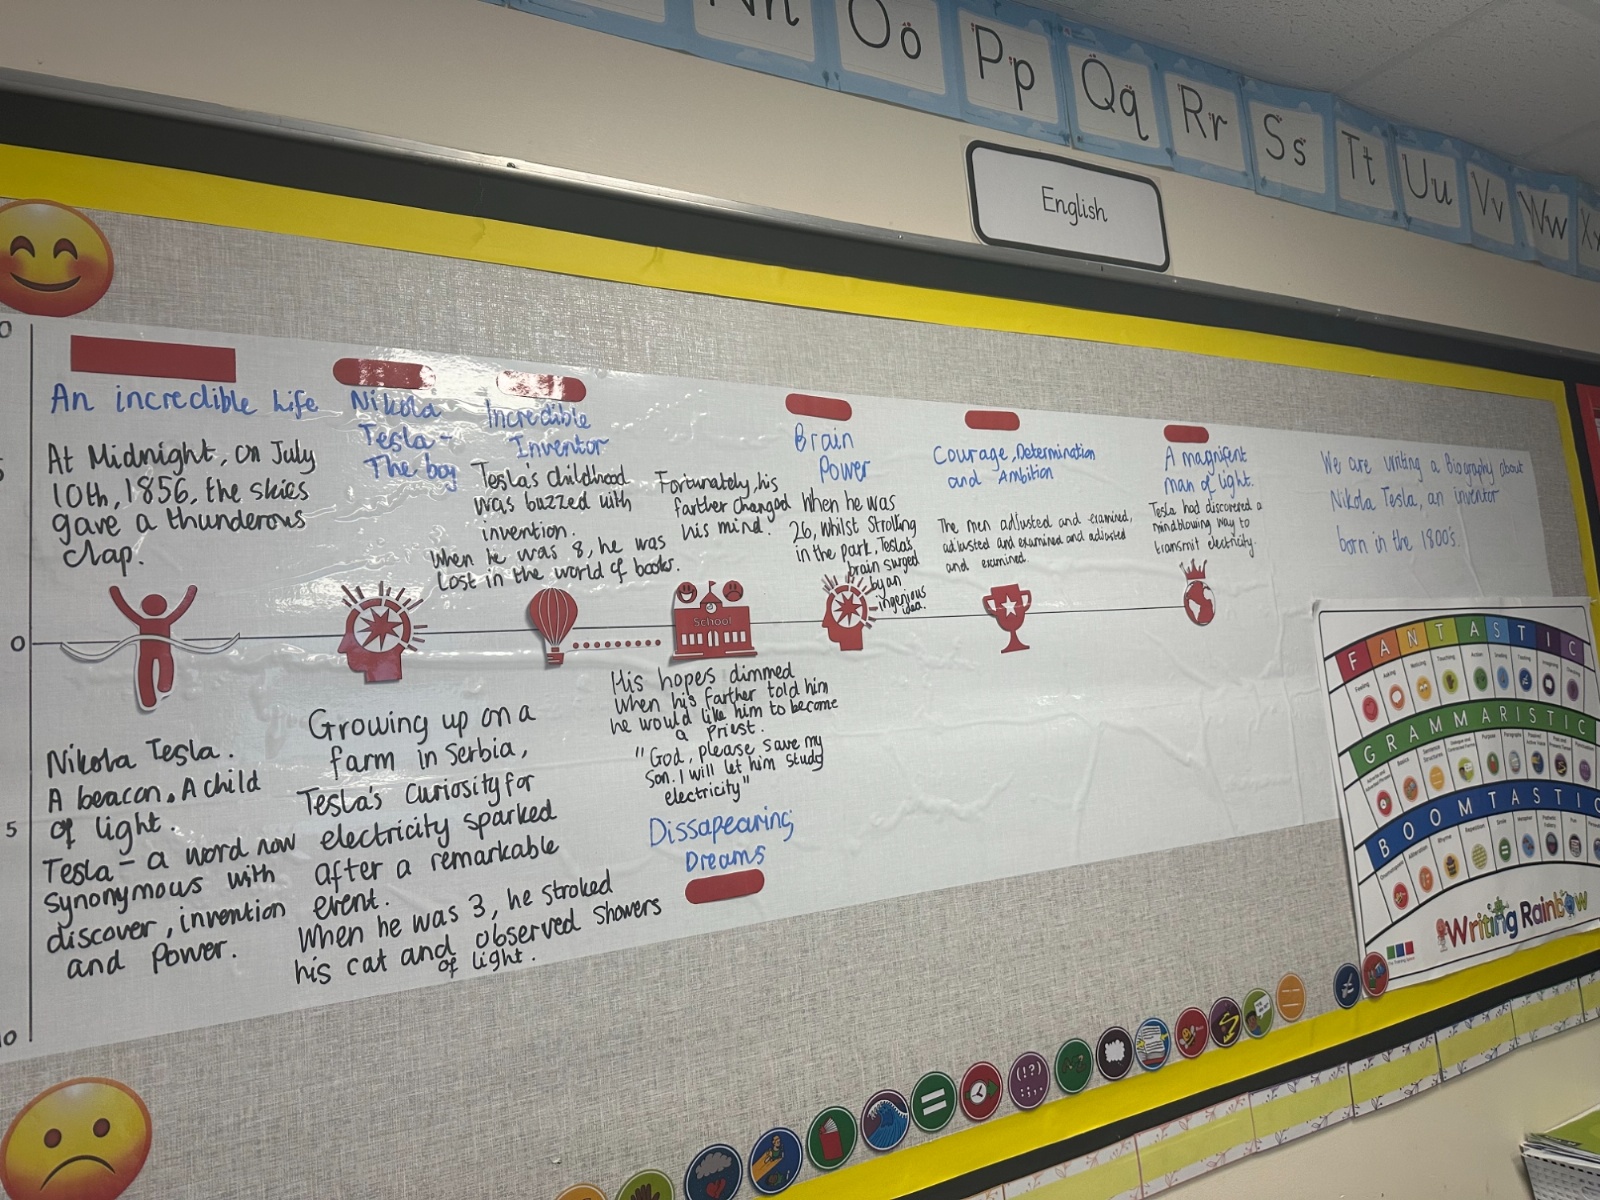 Nn Oo Pp Qq Rr Ss Tt Uu Vv Ww Xx
English
An incredible Life
At Midnight, on July
10th, 1856, the skies
gave a thunderous
clap.
Nikola
Tesla -
The boy
Incredible
Inventor
Tesla's childhood
was buzzed with
invention.
When he was 8, he was
lost in the world of books.
Fortunately, his
farther changed
his mind.
Brain
Power
When he was
26, whilst strolling
in the park, Teslas
brain surged
by an
ingenious
idea.
Courage, Determination
and Ambition
The men adjusted and examined,
adjusted and examined and adjusted
and examined.
A magnifent
man of light.
Tesla had discovered a
mindblowing way to
transmit electricity.
We are writing a Biography about
Nikola Tesla, an inventor
born in the 1800's.
0
School
Nikola Tesla.
A beacon. A child
of light.
Tesla - a word now
synonymous with
discover, invention
and Power.
Growing up on a
farm in Serbia,
Tesla's curiosity for
electricity sparked
after a remarkable
event.
When he was 3, he stroked
his cat and observed showers
of light.
His hopes dimmed
when his farther told him
he would like him to become
a Priest.
"God, please save my
son. I will let him study
electricity"
Dissapearing
Dreams
5
FANTASTIC
GRAMMARISTIC
BOOMTASTIC
Writing Rainbow